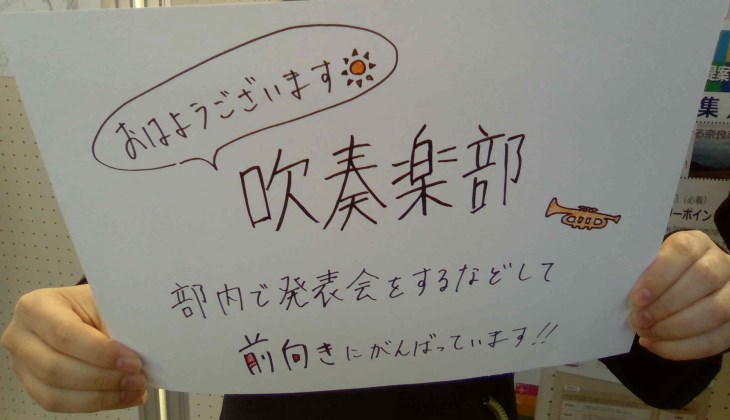 おはようございます
吹奏楽部
部内で発表会をするなどして
前向きにがんばっています!!
提案
集
る奈良
(必着)
ーポイン